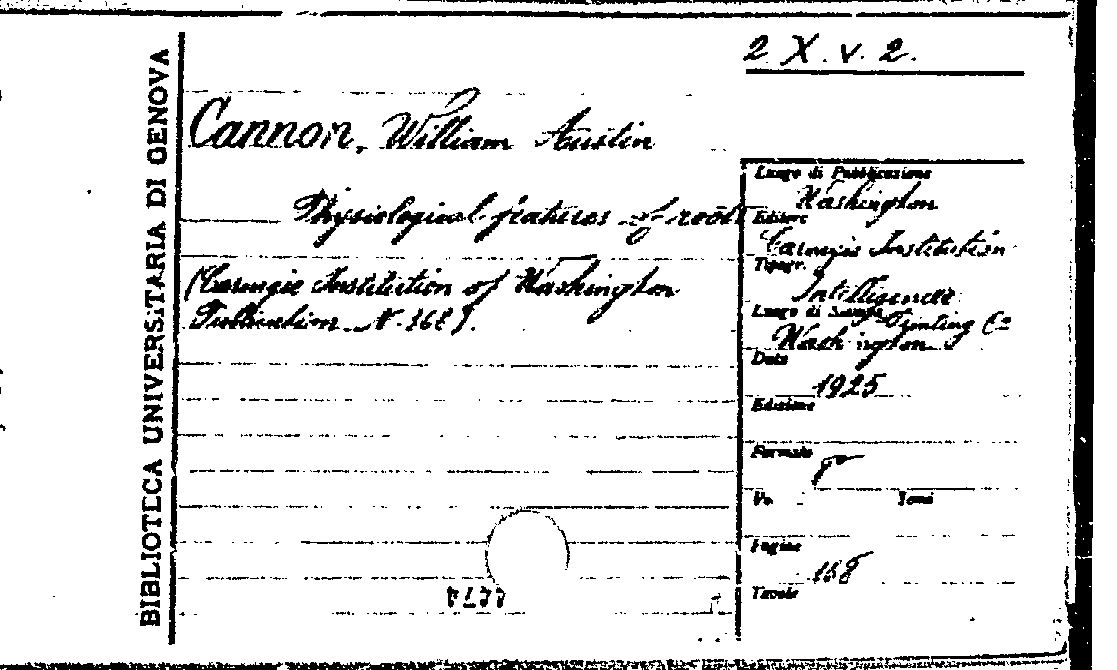 2 X. V. 2.
BIBLIOTECA UNIVERSITARIA DI GENOVA
Cannon, William Austin
Physiological features of roots
(Carnegie Institution of Washington
Publication N. 368).
Luogo di Pubblicazione
Washington
Editore
Carnegie Institution
Tipogr.
Intelligencer
Printing Co
Luogo di Stampa
Washington
Data
1925
Edizione
Formato
8°
Vo. Tomi
Pagine
168
Tavole